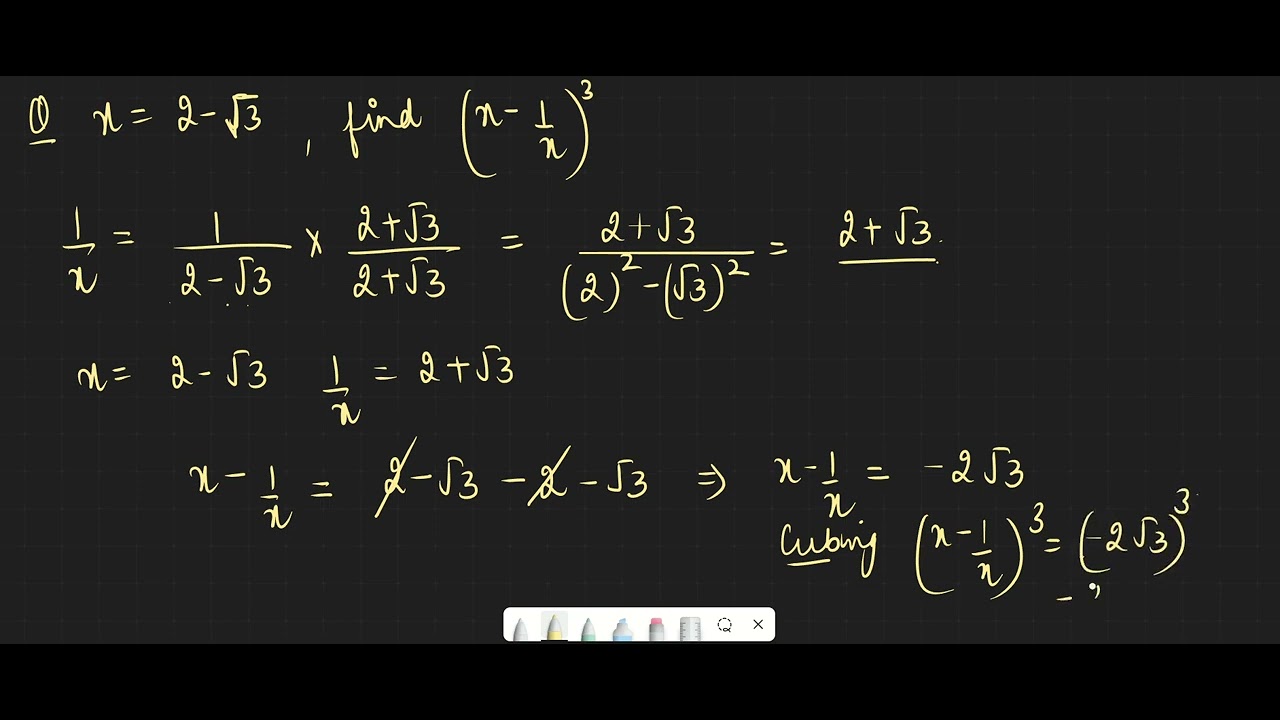 Q x = 2-√3 , find (x - 1/x)³
1/x = 1/(2-√3) × (2+√3)/(2+√3) = (2+√3)/((2)²-(√3)²) = 2+√3
x = 2-√3 1/x = 2+√3
x - 1/x = 2-√3 - 2 - √3 ⇒ x - 1/x = -2√3
Cubing (x - 1/x)³ = (-2√3)³
-